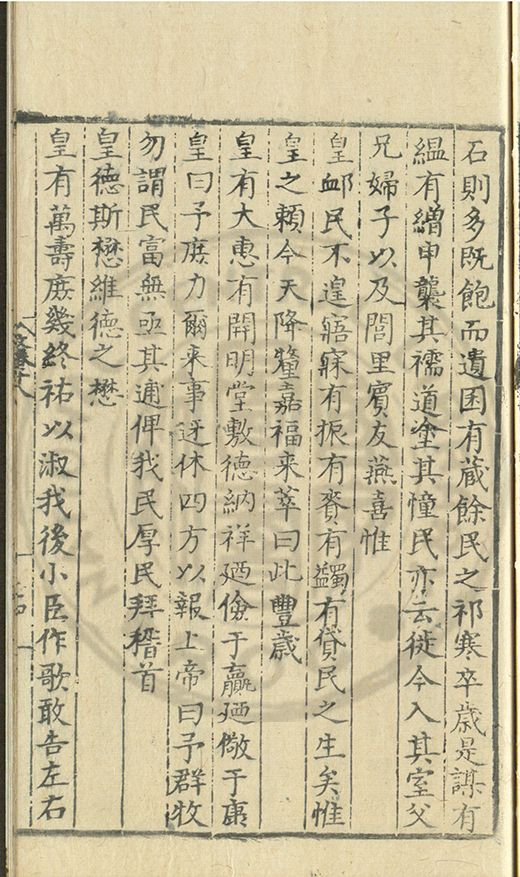 石則多既飽而遺囷有蔵餘民之祁寒卒歳是謀有
緼有繒申襲其襦道塗其憧民亦云徙今入其室父
兄婦子以及閭里賓友燕喜惟
皇䘏民不遑寤寐有振有賚有蠲有貸民之生矣惟
皇之賴今天降釐嘉福来萃曰此豐歳
皇有大惠有開明堂敷德納祥廼儉于贏廼儆于康
皇曰予庶力爾来事迓休四方以報上帝曰予群牧
勿謂民富無亟其逋俾我民厚民拜稽首
皇德斯懋維德之懋
皇有萬壽庶幾終祐以淑我後小臣作歌敢告左右